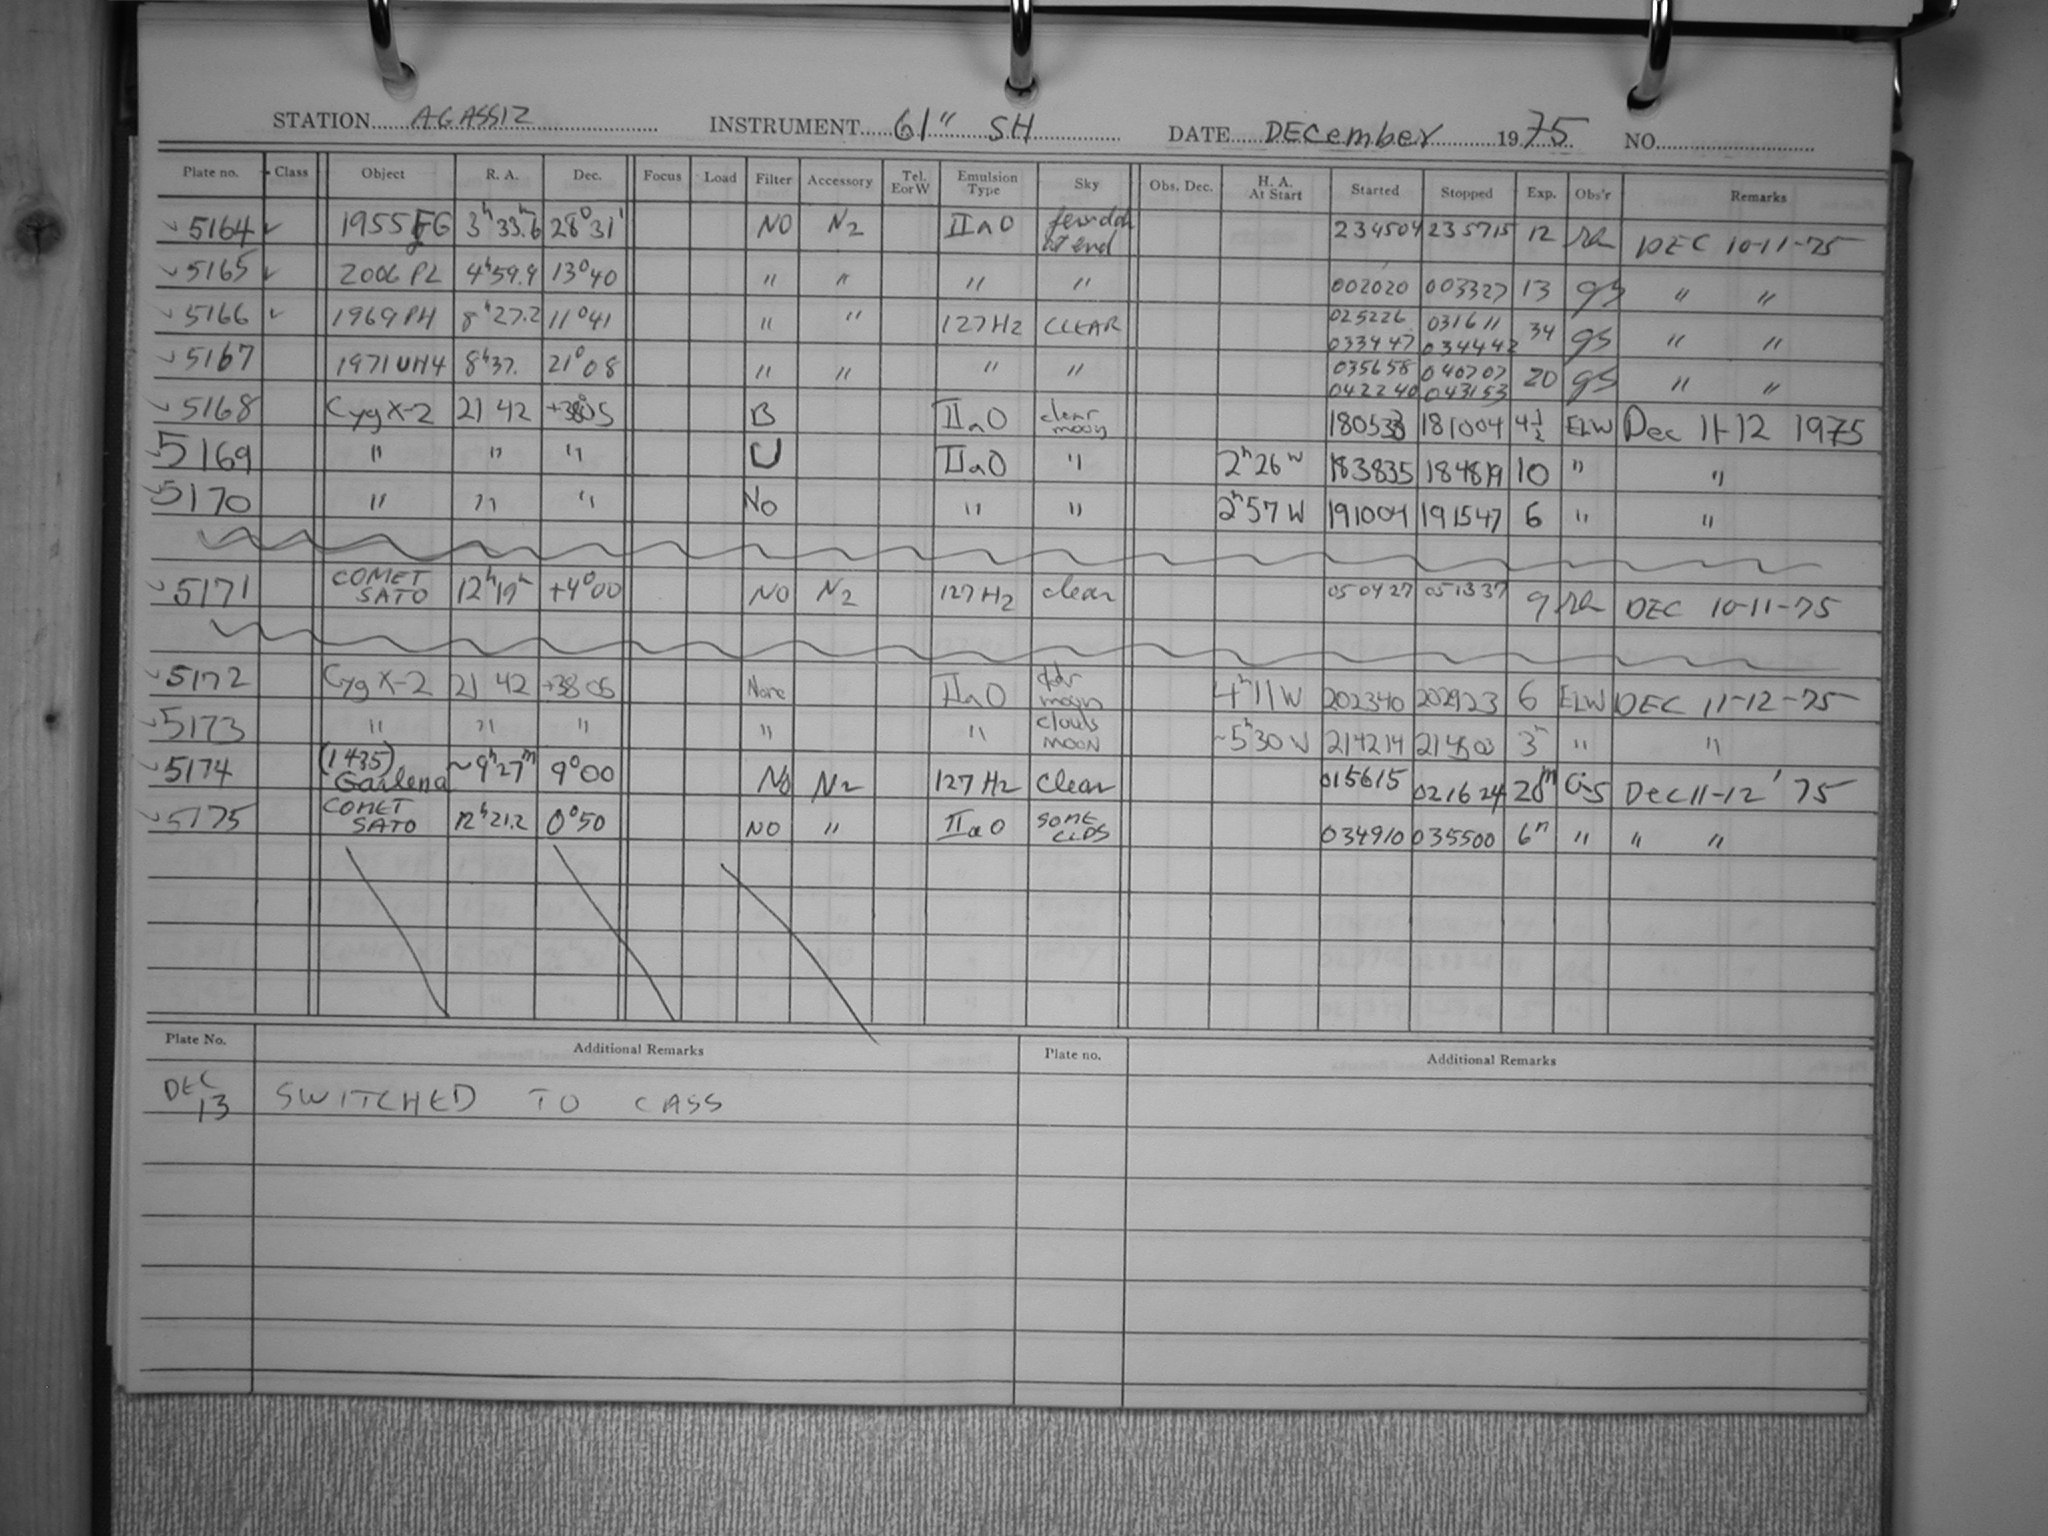 STATION AGASSIZ INSTRUMENT 61" SH DATE December 1975 NO.
Plate no. Class Object R. A. Dec. Focus Load Filter Accessory Tel. E or W Emulsion Type Sky Obs. Dec. H. A. At Start Started Stopped Exp. Obs'r Remarks
5164 ✓ 1955 FG 3h 33.6 28° 31' NO N2 IIaO at end 234504 235715 12 DEC 10-11-75
5165 ✓ 2006 PL 4h 59.9 13° 40 " " " " 002020 003327 13 gs " "
5166 ✓ 1969 PH 8h 27.2 11° 41 " " 127Hz CLEAR 025226 031611 34 gs " "
033447 034442
5167 1971 UH4 8h 37. 21° 08 " " " " 035658 040707 20 gs " "
042240 043153
5168 Cyg X-2 21 42 +38 05 B IIaO clear moon 180533 181004 4 1/2 ELW Dec 11-12 1975
5169 " " " U IIaO " 2h 26 W 183835 184819 10 " "
5170 " " " No " " 2h 57 W 191004 191547 6 " "
5171 COMET SATO 12h 19m +4° 00 NO N2 127Hz clear 050427 051337 9 DEC 10-11-75
5172 Cyg X-2 21 42 +38 05 None IIaO moon 4h 11 W 202340 202923 6 ELW DEC 11-12-75
5173 " " " " " clouds MOON ~5h 30 W 214214 214503 3m " "
5174 (1435) Garlena ~9h 27m 9° 00 No N2 127 Hz clear 015615 021624 20m GS Dec 11-12 '75
5175 COMET SATO 12h 21.2 0° 50 NO " IIaO SOME CLDS 034910 035500 6m " " "
Plate No. Additional Remarks Plate no. Additional Remarks
DEC 13 SWITCHED TO CASS